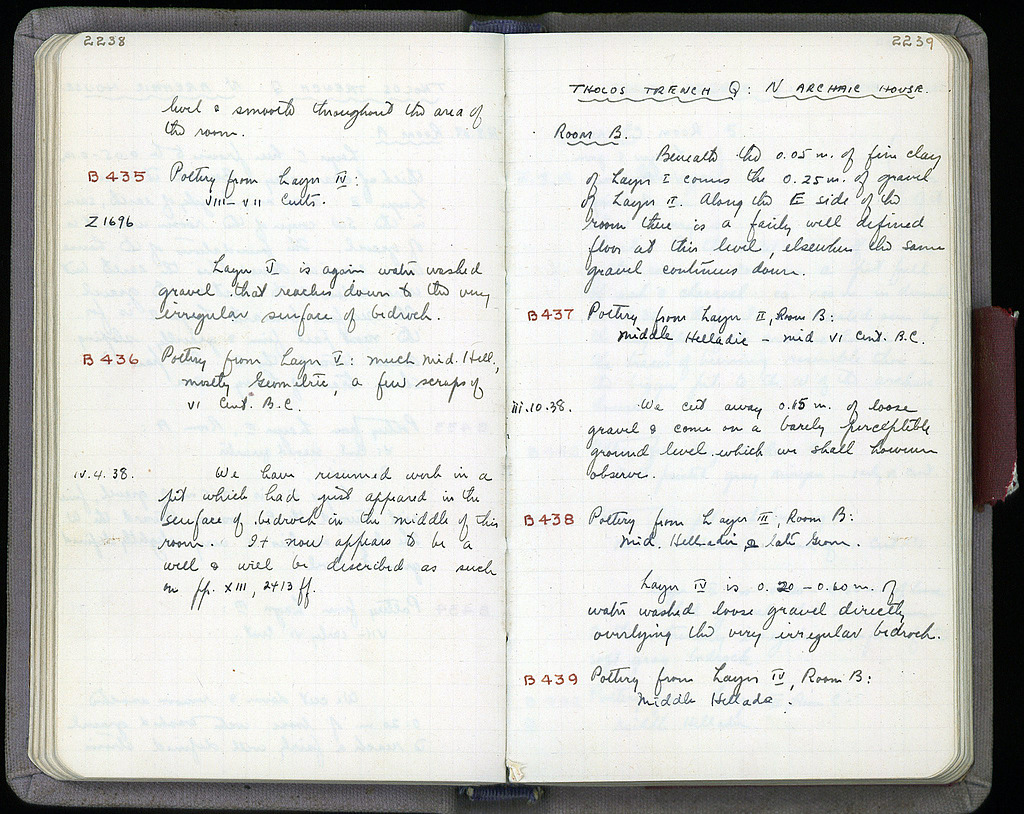 2238
level & smooth throughout the area of
the room.
B 435 Pottery from Layer IV:
VIII – VII Cents.
Z 1696
Layer V is again water washed
gravel that reaches down to the very
irregular surface of bedrock.
B 436 Pottery from Layer V: much Mid. Hell.,
mostly Geometric, a few scraps of
VI Cent. B.C.
IV.4.38. We have resumed work in a
pit which had just appeared in the
surface of bedrock in the middle of this
room. It now appears to be a
well & will be described as such
on pp. XIII, 2413 ff.
2239
THOLOS TRENCH Q: N ARCHAIC HOUSE.
Room B.
Beneath the 0.05 m. of firm clay
of Layer I comes the 0.25 m. of gravel
of Layer II. Along the E side of the
room there is a fairly well defined
floor at this level, elsewhere the same
gravel continues down.
B 437 Pottery from Layer II, Room B:
Middle Helladic – mid VI Cent. B.C.
III.10.38. We cut away 0.15 m. of loose
gravel & come on a barely perceptible
ground level which we shall however
observe.
B 438 Pottery from Layer III, Room B:
Mid. Helladic & late Geom.
Layer IV is 0.20 – 0.60 m. of
water washed loose gravel directly
overlying the very irregular bedrock.
B 439 Pottery from Layer IV, Room B:
Middle Hellada.